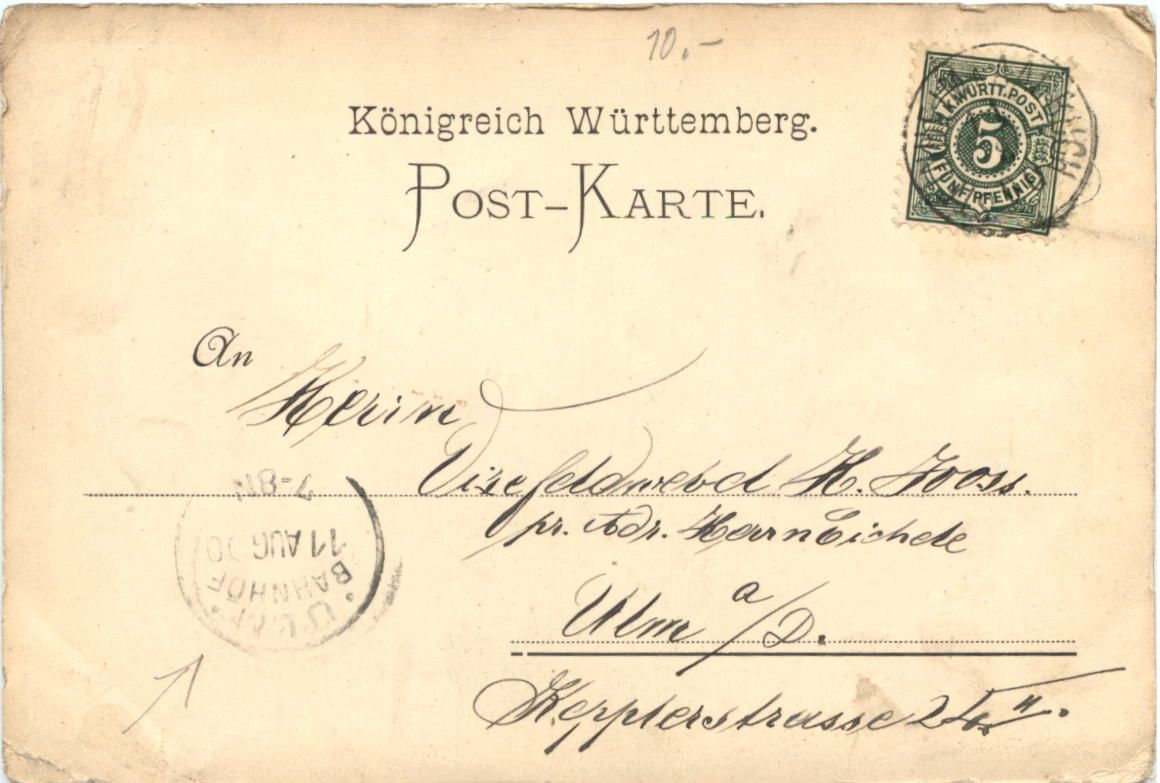 10.-
Königreich Württemberg.
POST-KARTE.
K. WÜRTT. POST
5
FÜNF PFENNIG
An
Herrn
Vizefeldwebel H. Jooss.
pr. Adr. Herrn Eichele
Ulm a/D.
Kepplerstrasse
ULM
BAHNHOF
11 AUG 00
7-8N